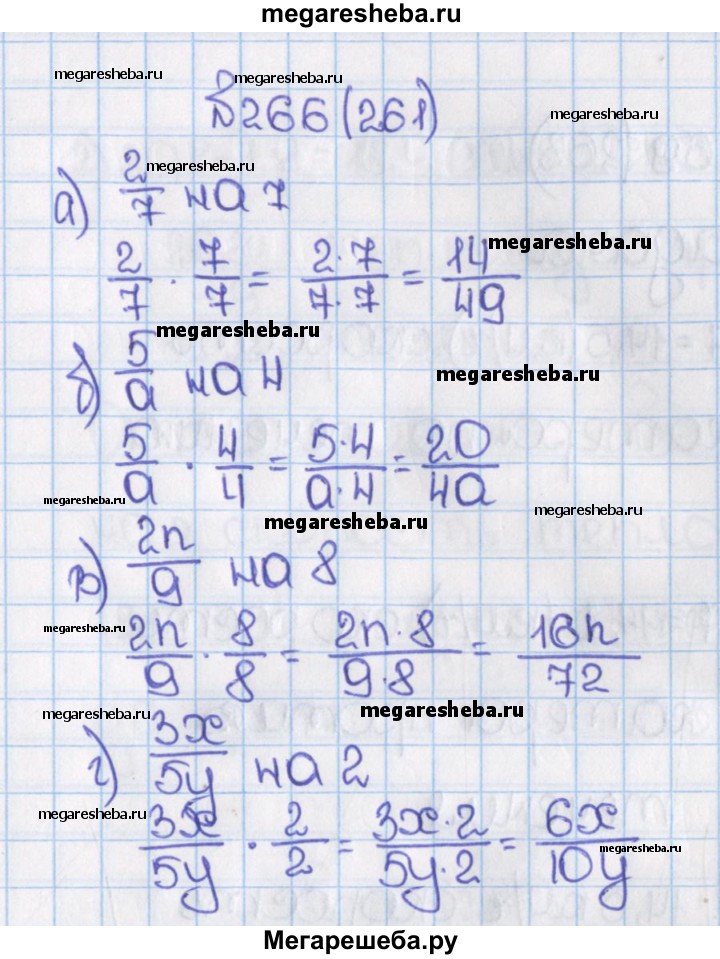 megaresheba.ru
megaresheba.ru megaresheba.ru
№266(261) megaresheba.ru
megaresheba.ru
а) 2/7 на 7
2/7 · 7/7 = 2·7/7·7 = 14/49
megaresheba.ru
megaresheba.ru
б) 5/a на 4
megaresheba.ru
5/a · 4/4 = 5·4/a·4 = 20/4a
megaresheba.ru
megaresheba.ru
megaresheba.ru
в) 2n/9 на 8
megaresheba.ru
2n/9 · 8/8 = 2n·8/9·8 = 16n/72
megaresheba.ru
megaresheba.ru
г) 3x/5y на 2
megaresheba.ru
3x/5y · 2/2 = 3x·2/5y·2 = 6x/10y
megaresheba.ru
Мегарешеба.ру